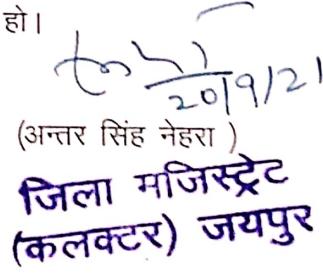 हो।
20/9/21
(अन्तर सिंह नेहरा )
जिला मजिस्ट्रेट
(कलक्टर) जयपुर